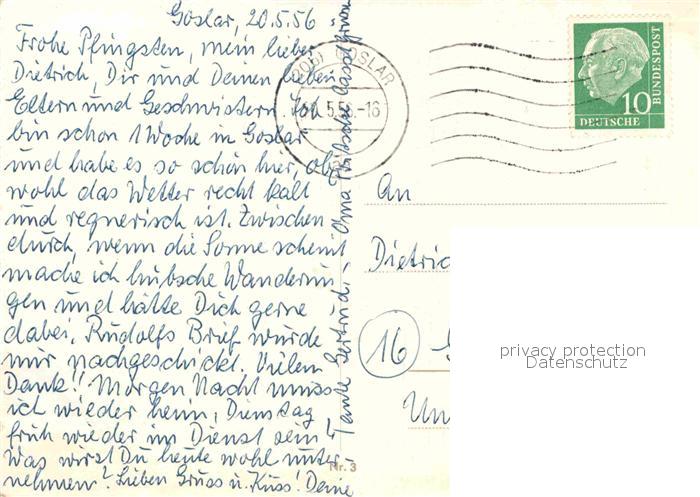 Goslar, 20.5.56
Frohe Pfingsten, mein lieber
Dietrich, Dir und Deinen lieben
Eltern und Geschwistern. Ich
bin schon 1 Woche in Goslar
und habe es so schön hier, ob-
wohl das Wetter recht kalt
und regnerisch ist. Zwischen
durch, wenn die Sonne scheint
mache ich hübsche Wanderun-
gen und hätte Dich gerne
dabei. Rudolfs Brief wurde
mir nachgeschickt. Vielen
Dank!! Morgen Nacht muss
ich wieder heim, Dienstag
früh wieder im Dienst sein!
Was wirst Du heute wohl unter-
nehmen? Lieben Gruss u. Kuss! Deine
Tante Gertrud. - Oma lässt grüssen
GOSLAR
5.56.-16
10
DEUTSCHE
BUNDESPOST
An
Dietric
16
Un
Nr. 3
privacy protection
Datenschutz